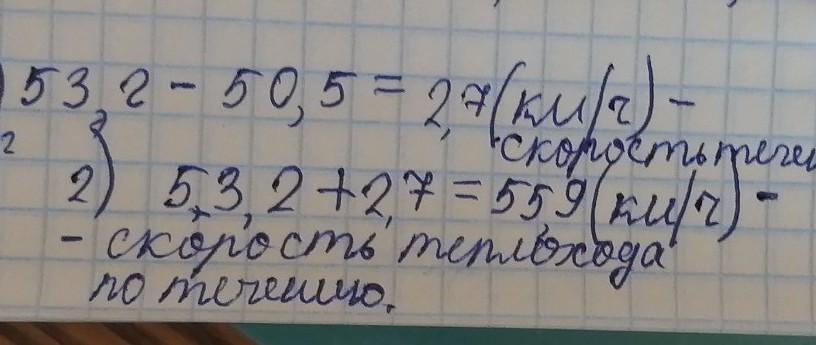 ) 53,2 - 50,5 = 2,7 (км/ч) -
скорость течен
2) 53,2 + 2,7 = 55,9 (км/ч) -
- скорость теплохода
по течению.